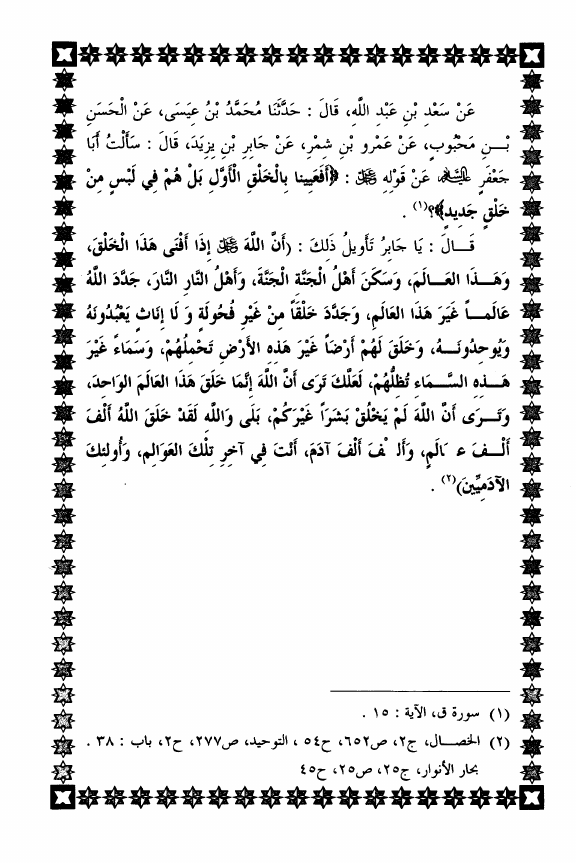 عَنْ سَعْدِ بْنِ عَبْدِ اللَّه، قَالَ : حَدَّثَنَا مُحَمَّدُ بْنُ عِيسَى، عَنْ الْحَسَنِ
بْـنِ مَحْبُوبٍ، عَنْ عَمْرِو بْنِ شَمْرِ، عَنْ جَابِرِ بْنِ يِزِيَدَ، قَالَ : سَأَلْتُ أَبَا
جَعْفَرٍ عَنْ قَوْلِهِ : ﴿أَفَعَيِينا بِالْخَلْقِ الْأَوَّلِ بَلْ هُمْ فِي لَبْسٍ مِنْ
خَلْقٍ جَدِيدٍ﴾؟(١) .
قَـــالَ : يَا جَابِرُ تَأوِيلُ ذَلِكَ : (أَنَّ اللَّهَ إِذَا أَفْنَى هَذَا الْخَلْقَ،
وَهَـــذَا الْعَـــالَمَ، وَسَكَنَ أَهْلُ الْجَنَّةِ الْجَنَّةَ، وَأَهْلُ النَّارِ النَّارَ، جَدَّدَ اللَّهُ
عَالَمـــاً غَيَرَ هَذَا الْعَالَمِ، وَجَدَّدَ خَلْقَاً مِنْ غَيْرِ فُحُولَةٍ وَ لَا إِنَاثٍ يَعْبُدُونَهُ
وَيُوحِدُونَـــهُ، وَخَلَقَ لَهُمْ أَرْضَاً غَيْرَ هَذِهِ الأَرْضِ تَحْمِلُهُمْ، وَسَمَاءً غَيْرَ
هَـــذِهِ السَّـــمَاء تُظِلُّهُمْ، لَعَلَّكَ تَرَى أَنَّ اللَّهَ إِنَّمَا خَلَقَ هَذَا الْعَالَمَ الوَاحِدَ،
وَتَـــرَى أَنَّ اللَّهَ لَمْ يَخْلُقْ بَشَرَاً غَيْرَكُمْ، بَلَى وَاللَّهِ لَقَدْ خَلَقَ اللَّهُ أَلْفَ
أَلْـــفَ عَالَمٍ، وَأَلْفَ أَلْفَ آدَمَ، أَنْتَ فِي آخِرِ تِلْكَ العَوَالِمِ، وَأُولئِكَ
الآدَمِيِّينَ)(٢) .
(١) سورة ق، الآية : ١٥ .
(٢) الخصـــال، ج٢، ص٦٥٢، ح٥٤ ، التوحيد، ص٢٧٧، ح٢، باب : ٣٨ .
بحار الأنوار، ج٢٥، ص٢٥، ح٤٥